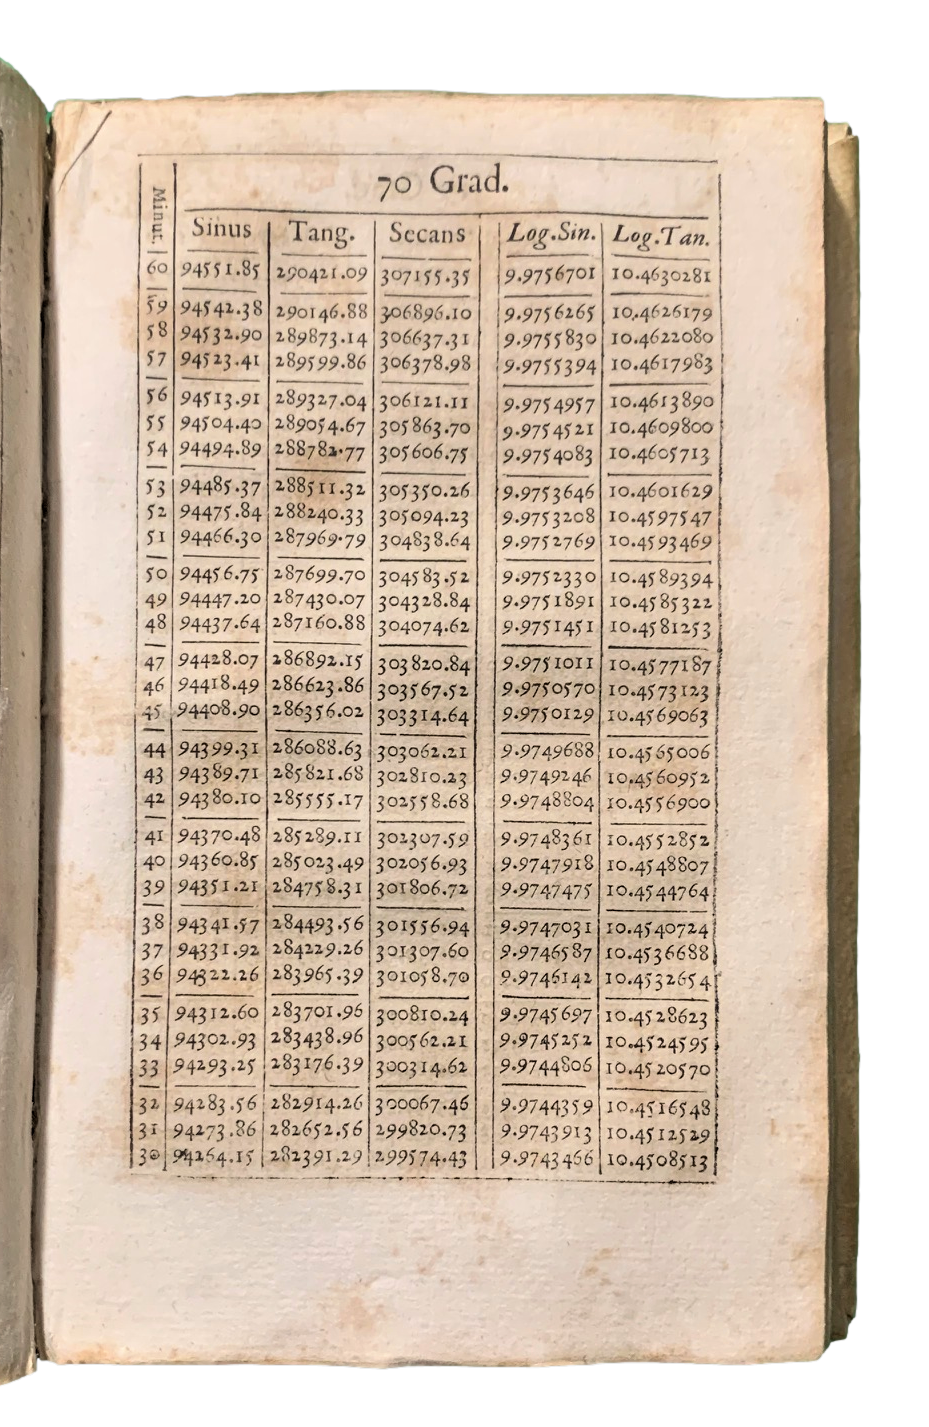 70 Grad.
Minut. Sinus Tang. Secans Log.Sin. Log.Tan.
60 94551.85 290421.09 307155.35 9.9756701 10.4630281
59 94542.38 290146.88 306896.10 9.9756265 10.4626179
58 94532.90 289873.14 306637.31 9.9755830 10.4622080
57 94523.41 289599.86 306378.98 9.9755394 10.4617983
56 94513.91 289327.04 306121.11 9.9754957 10.4613890
55 94504.40 289054.67 305863.70 9.9754521 10.4609800
54 94494.89 288782.77 305606.75 9.9754083 10.4605713
53 94485.37 288511.32 305350.26 9.9753646 10.4601629
52 94475.84 288240.33 305094.23 9.9753208 10.4597547
51 94466.30 287969.79 304838.64 9.9752769 10.4593469
50 94456.75 287699.70 304583.52 9.9752330 10.4589394
49 94447.20 287430.07 304328.84 9.9751891 10.4585322
48 94437.64 287160.88 304074.62 9.9751451 10.4581253
47 94428.07 286892.15 303820.84 9.9751011 10.4577187
46 94418.49 286623.86 303567.52 9.9750570 10.4573123
45 94408.90 286356.02 303314.64 9.9750129 10.4569063
44 94399.31 286088.63 303062.21 9.9749688 10.4565006
43 94389.71 285821.68 302810.23 9.9749246 10.4560952
42 94380.10 285555.17 302558.68 9.9748804 10.4556900
41 94370.48 285289.11 302307.59 9.9748361 10.4552852
40 94360.85 285023.49 302056.93 9.9747918 10.4548807
39 94351.21 284758.31 301806.72 9.9747475 10.4544764
38 94341.57 284493.56 301556.94 9.9747031 10.4540724
37 94331.92 284229.26 301307.60 9.9746587 10.4536688
36 94322.26 283965.39 301058.70 9.9746142 10.4532654
35 94312.60 283701.96 300810.24 9.9745697 10.4528623
34 94302.93 283438.96 300562.21 9.9745252 10.4524595
33 94293.25 283176.39 300314.62 9.9744806 10.4520570
32 94283.56 282914.26 300067.46 9.9744359 10.4516548
31 94273.86 282652.56 299820.73 9.9743913 10.4512529
30 94264.15 282391.29 299574.43 9.9743466 10.4508513